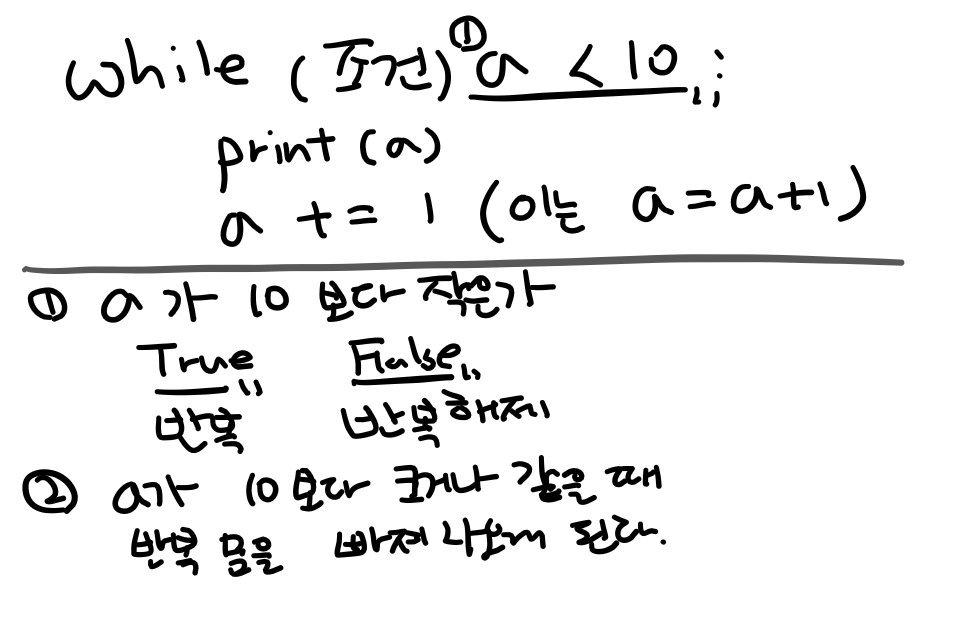 while (조건) ① a < 10 :
print (a)
a += 1 (이는 a = a+1)
① a 가 10 보다 작은가
True False
반복 반복해제
② a가 10 보다 크거나 같을 때
반복 문을 빠져 나오게 된다.